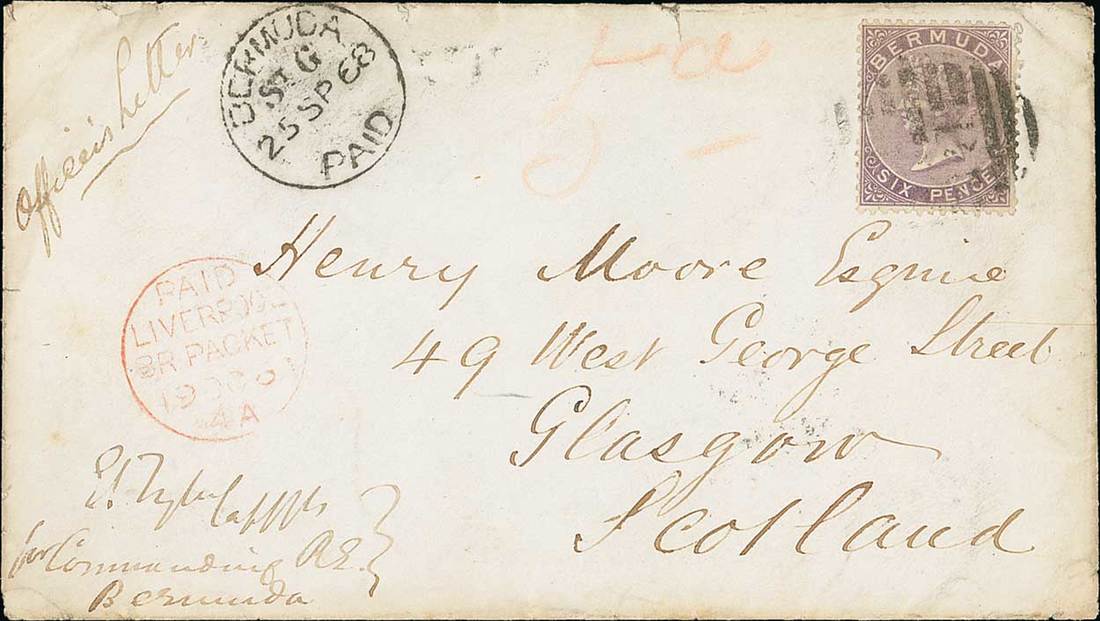 Officer's Letter
BERMUDA
St G
25 SP 68
PAID
BERMUDA
SIX PENCE
Henry Moore Esquire
49 West George Street
Glasgow
Scotland
PAID
LIVERPOOL
BR PACKET
19 OC 6
4A
Commanding R.E.
Bermuda